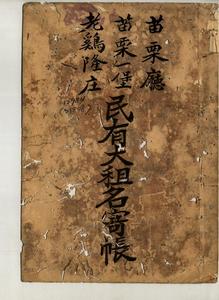 苗栗廳
苗栗一堡
老鷄隆庄
民有大租名寄帳